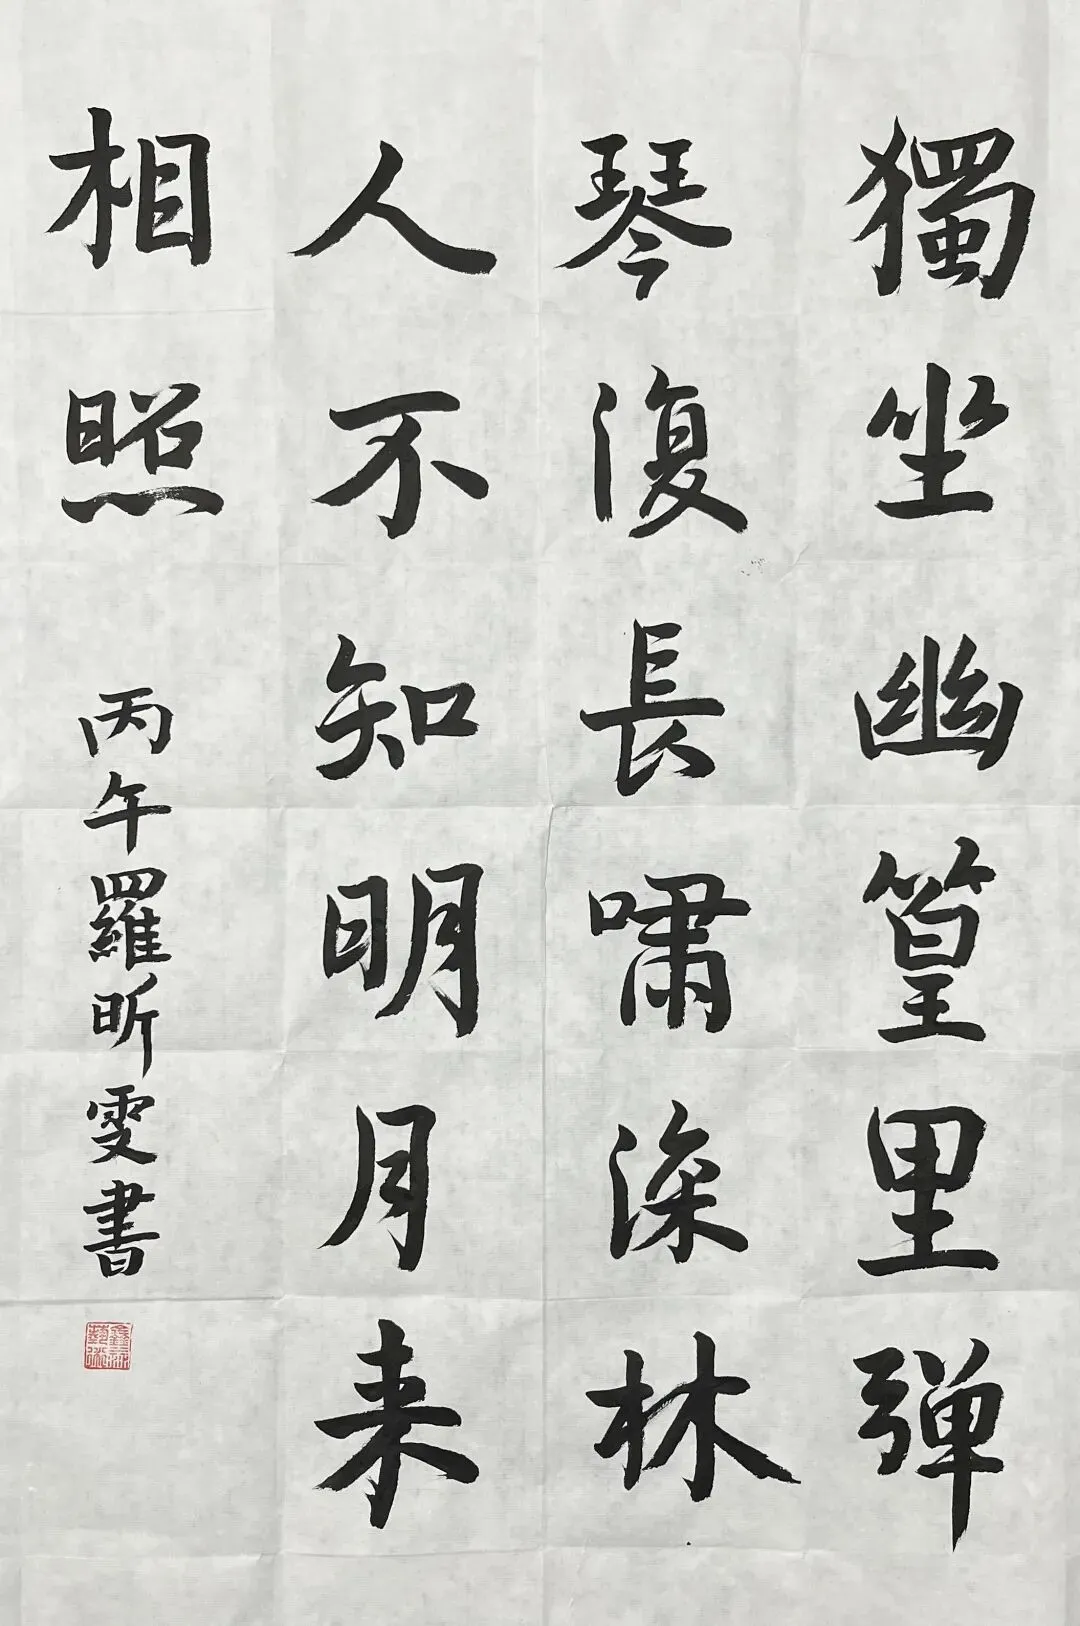 獨坐幽篁里弹
琴復長嘯深林
人不知明月来
相照
丙午羅昕雯書